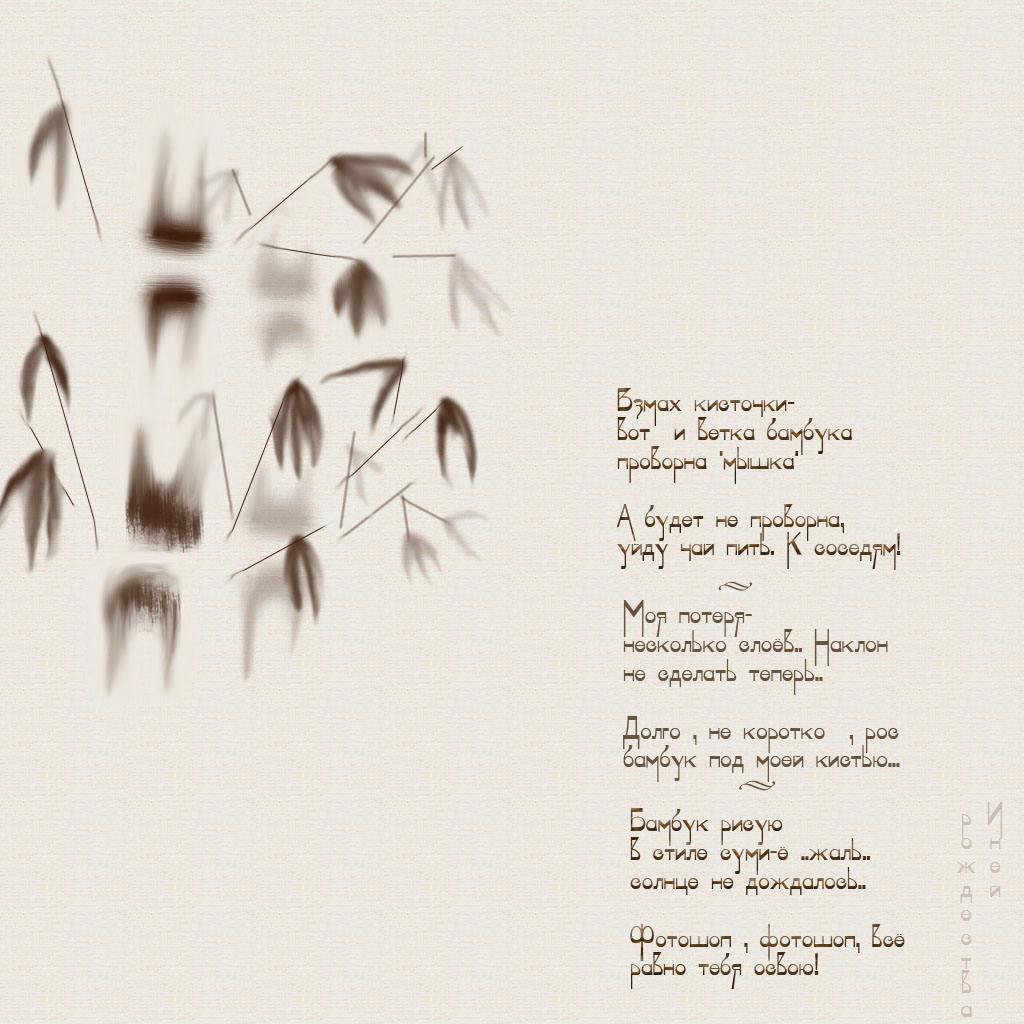 Взмах кисточки-
вот и ветка бамбука
проворна "мышка"
А будет не проворна,
уйду чай пить. К соседям!
Моя потеря-
несколько слоёв.. Наклон
не сделать теперь..
Долго , не коротко , рос
бамбук под моей кистью...
Бамбук рисую
в стиле суми-ё ..жаль..
солнце не дождалось..
Фотошоп , фотошоп, всё
равно тебя освою!
Иней
рождества